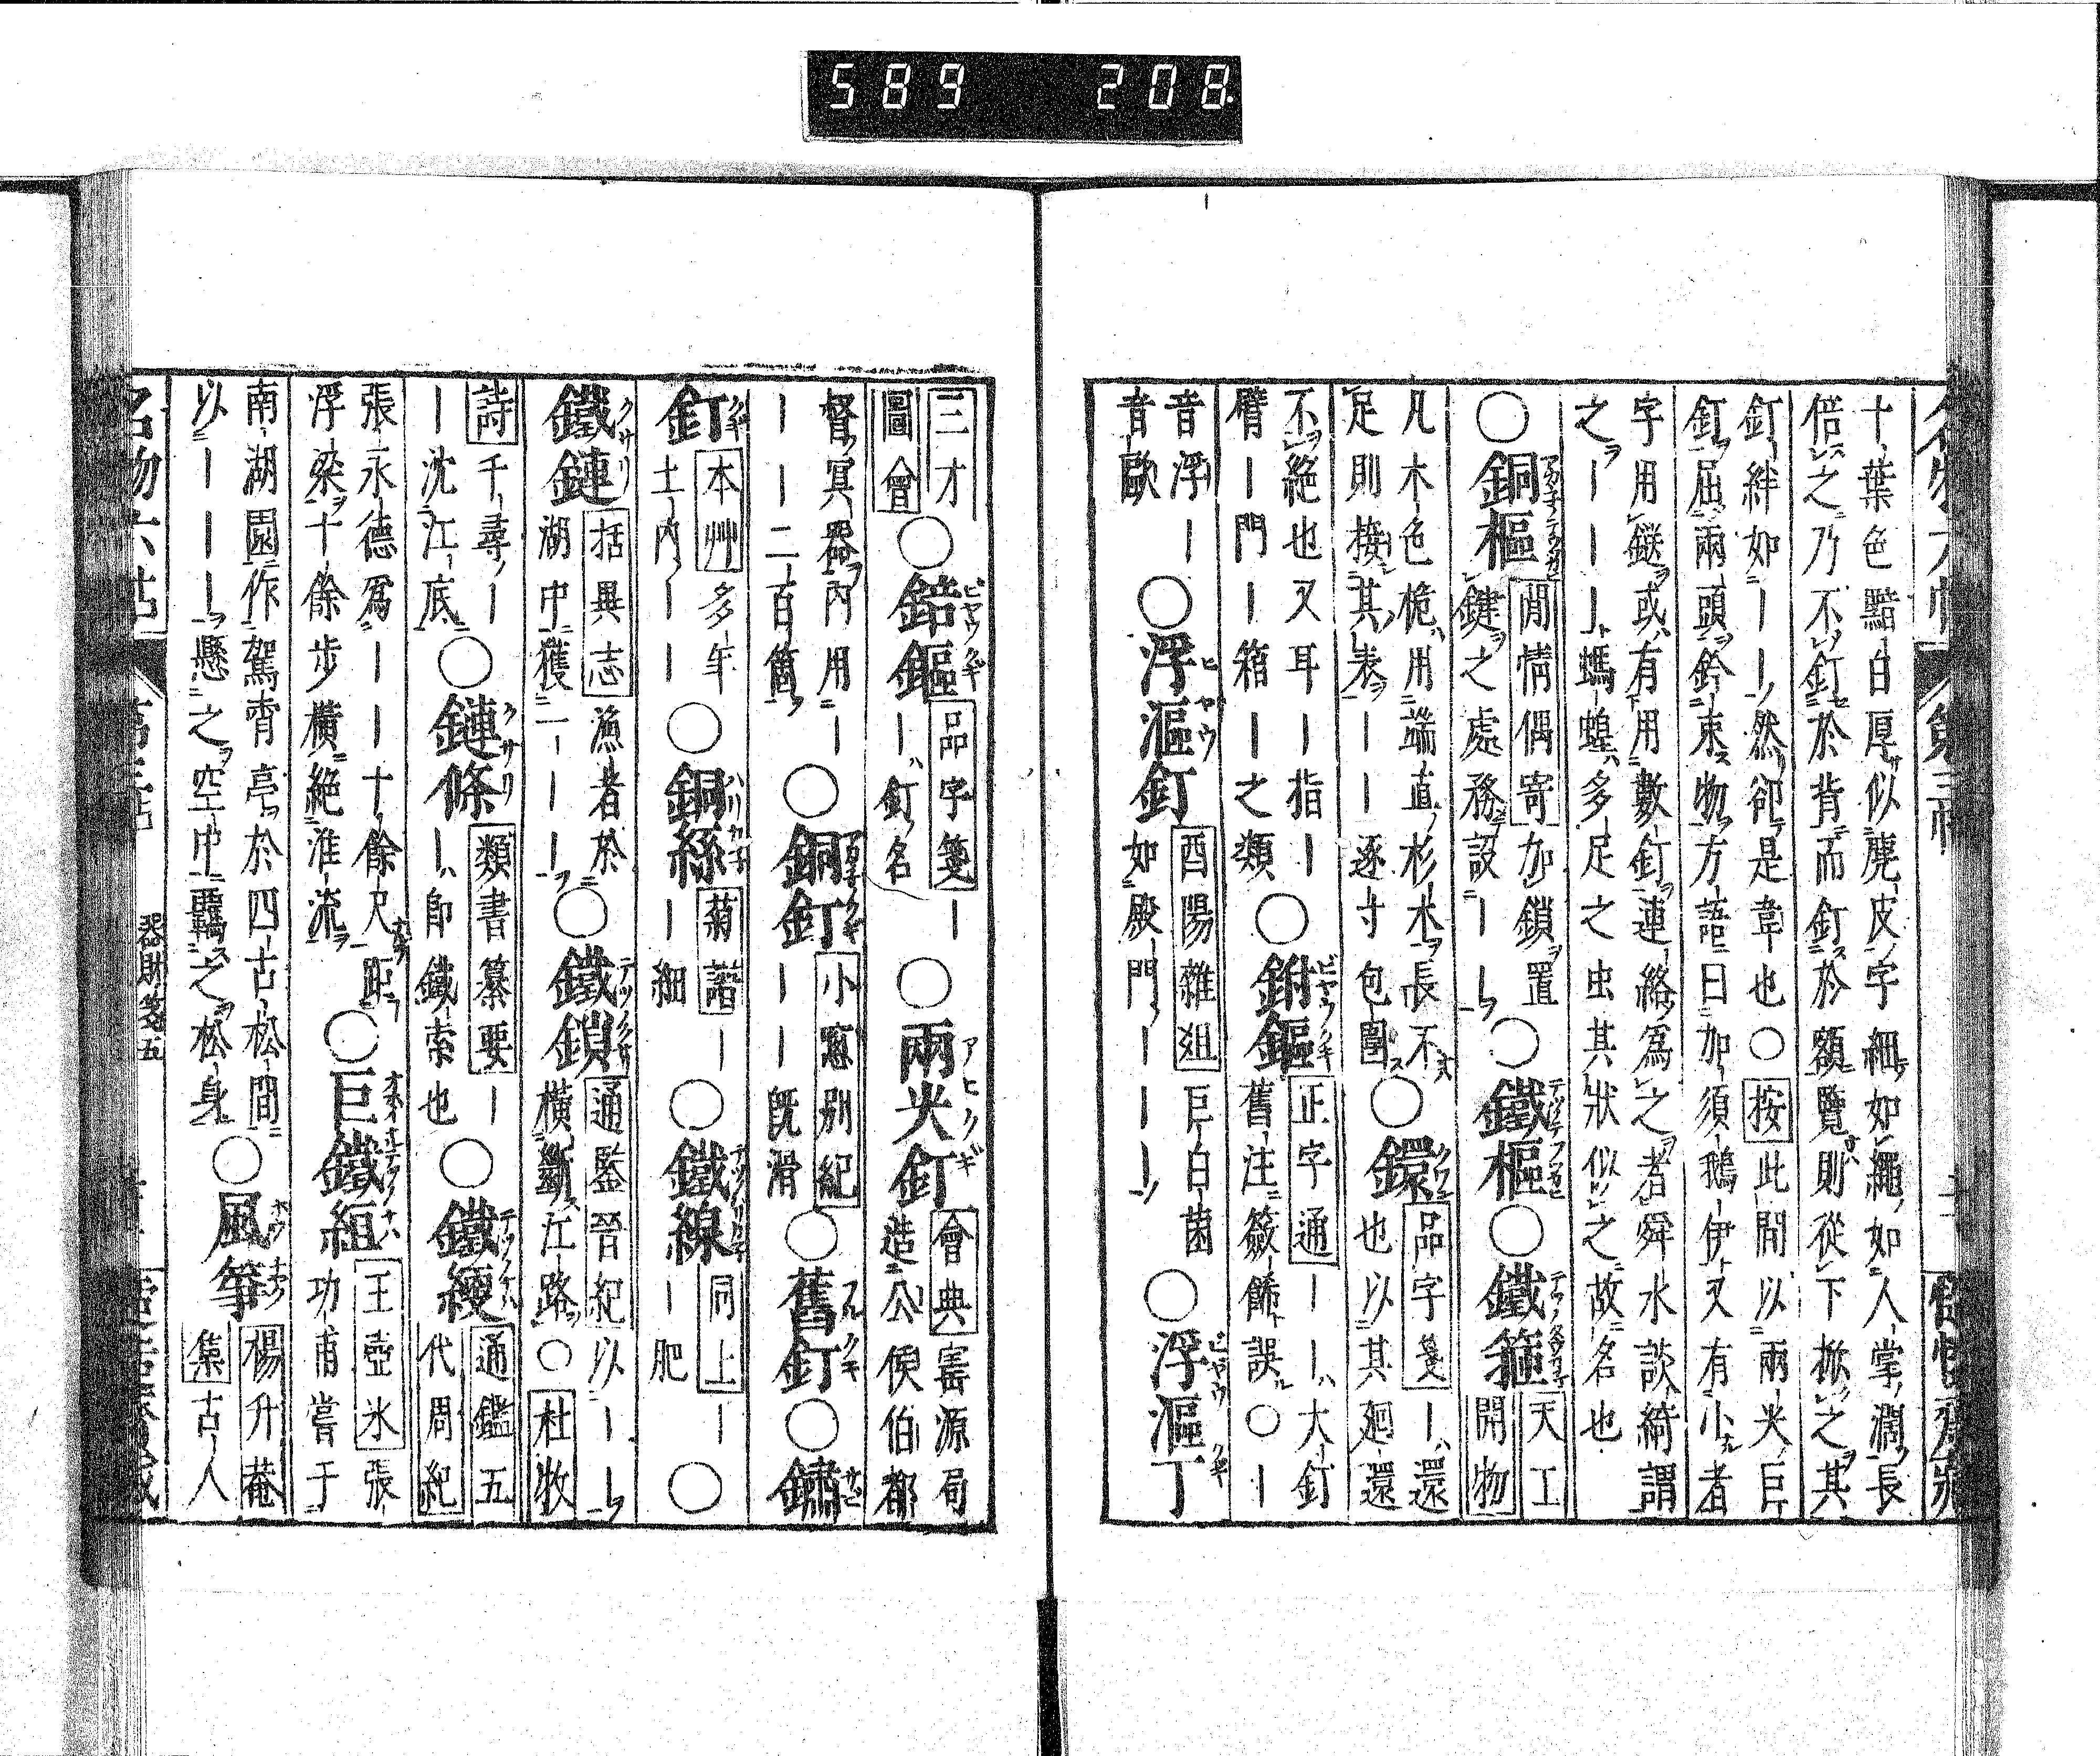 589 208
十葉色黯白厚似麂皮字細如繩如人掌濶長
倍之乃不釘於背而釘於額覽則從下掀之其
釘絆如――然卻是韋也○按此間以兩尖巨
釘屈兩頭鈐束物方語曰加須鵝伊又有小者
字用鎹或有用數釘連絡爲之者舜水談綺謂
之―――螞蝗多足之虫其狀似之故名也
○銅樞閒情偶寄加鎖置
鍵之處務設――○鐵樞○鐵箍天工
開物
凡木色桅用端直杉木長不
足則接其表――逐寸包圍○鐶品字箋―還
也以其廻還
不絕也又耳―指―
臂―門―箱―之類○鉜鏂正字通――大釘
舊注簽餙誤○―
音浮―
音歐○浮漚釘酉陽雜爼巨白菌
如殿門―――○浮漚丁
三才
圖會○錇鏂品字箋―
―釘名○兩尖釘會典窰源局
造公侯伯都
督冥器內用―
――二百箇○銅釘小窓別紀
――既滑○舊釘○鏽
釘本艸多年
土內――○銅絲菊譜―
―細○鐵線同上―
―肥○
鐵鏈括異志漁者於
湖中獲一―――○鐵鎖通鑑晉紀以――
橫斷江路○杜牧
詩千尋―
―沈江底○鏈條類書纂要―
―卽鐵索也○鐵綆通鑑五
代周紀
張永德爲――十餘尺距
浮梁十餘步橫絕淮流○巨鐵絙王壺氷張
功甫嘗于
南湖園作駕霄亭於四古松間
以――――懸之空中羈之松身○風箏楊升菴
集古人
名物六帖
器財箋五